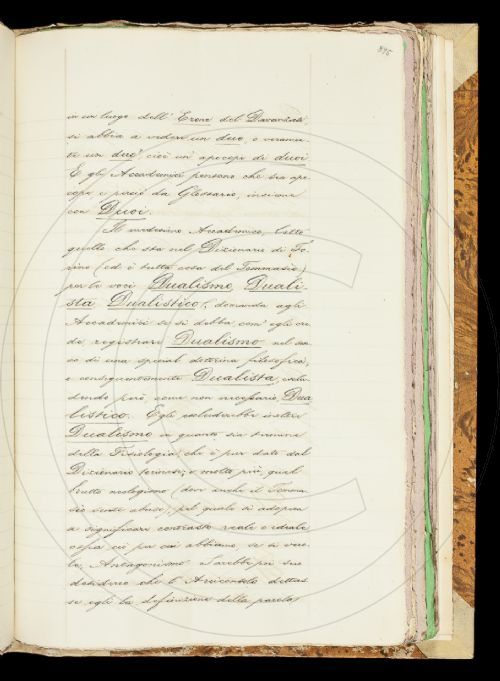 895
in un luogo dell' Erone del Davanzati
si abbia a vedere un due, o veramen-
te un duo' cioè un' apocope di duoi
E gli Accademici pensano che sia apo-
cope e perciò da Glossario, insieme
con Duoi.
Il medesimo Accademico, letto
quello che sta nel Dizionario di To-
rino (ed è tutta cosa del Tommaseo)
per le voci Dualismo, Duali-
sta Dualistico, domanda agli
Accademici se si debba, com' egli cre-
de, registrare Dualismo nel sen-
so di una special dottrina filosofica,
e conseguentemente Dualista, esclu-
dendo però, come non necessario, Dua
listico. Egli escluderebbe inoltre
Dualismo in quanto sia termine
della Fisiologia, che è pur dato dal
Dizionario torinese; e molto più, qual
brutto neologismo (dove anche il Tomma-
seo vende abuso), pel quale si adopera
a significare contrasto reale o ideale
ossia ciò per cui abbiamo, se si vuo-
le, Antagonismo. Sarebbe poi suo
desiderio che l' Arciconsolo dettas
se egli la definizione della parola